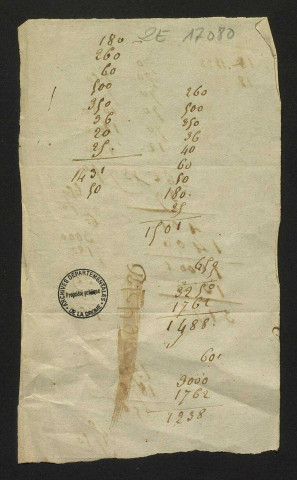 2E 17080
180
260
60
500
350
36
20
25
1431
50
260
500
350
36
40
60
50
180
25
1501
659
3250
1762
1488
601
3000
1762
1238
ARCHIVES DÉPARTEMENTALES
Propriété publique
DE LA DROME